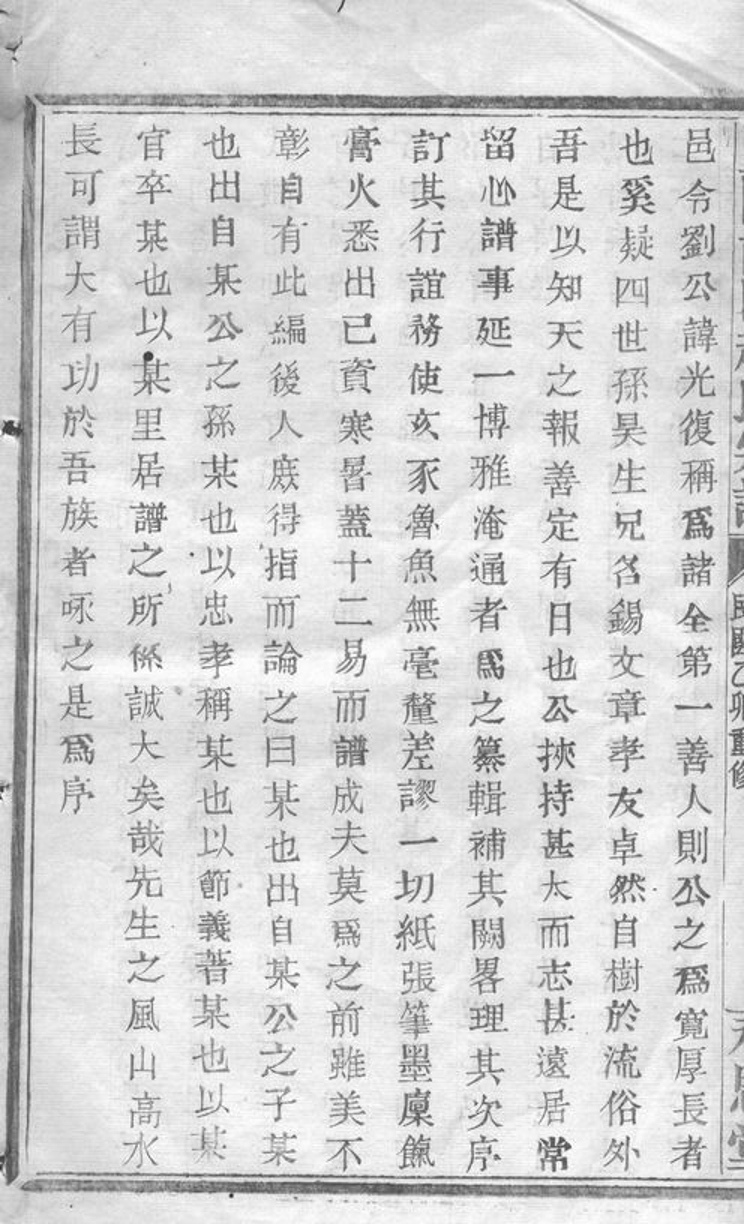 民國乙卯重修
邑令劉公諱光復稱爲諸全第一善人則公之爲寬厚長者
也奚疑四世孫昊生兄名錫文章孝友卓然自樹於流俗外
吾是以知天之報善定有日也公挾持甚大而志甚遠居常
留心譜事延一博雅淹通者爲之纂輯補其闕畧理其次序
訂其行誼務使亥豕魯魚無毫釐差謬一切紙張筆墨廩餼
膏火悉出己資寒暑蓋十二易而譜成夫莫爲之前雖美不
彰自有此編後人庶得指而論之曰某也出自某公之子某
也出自某公之孫某也以忠孝稱某也以節義著某也以某
官卒某也以某里居譜之所係誠大矣哉先生之風山高水
長可謂大有功於吾族者啄之是爲序